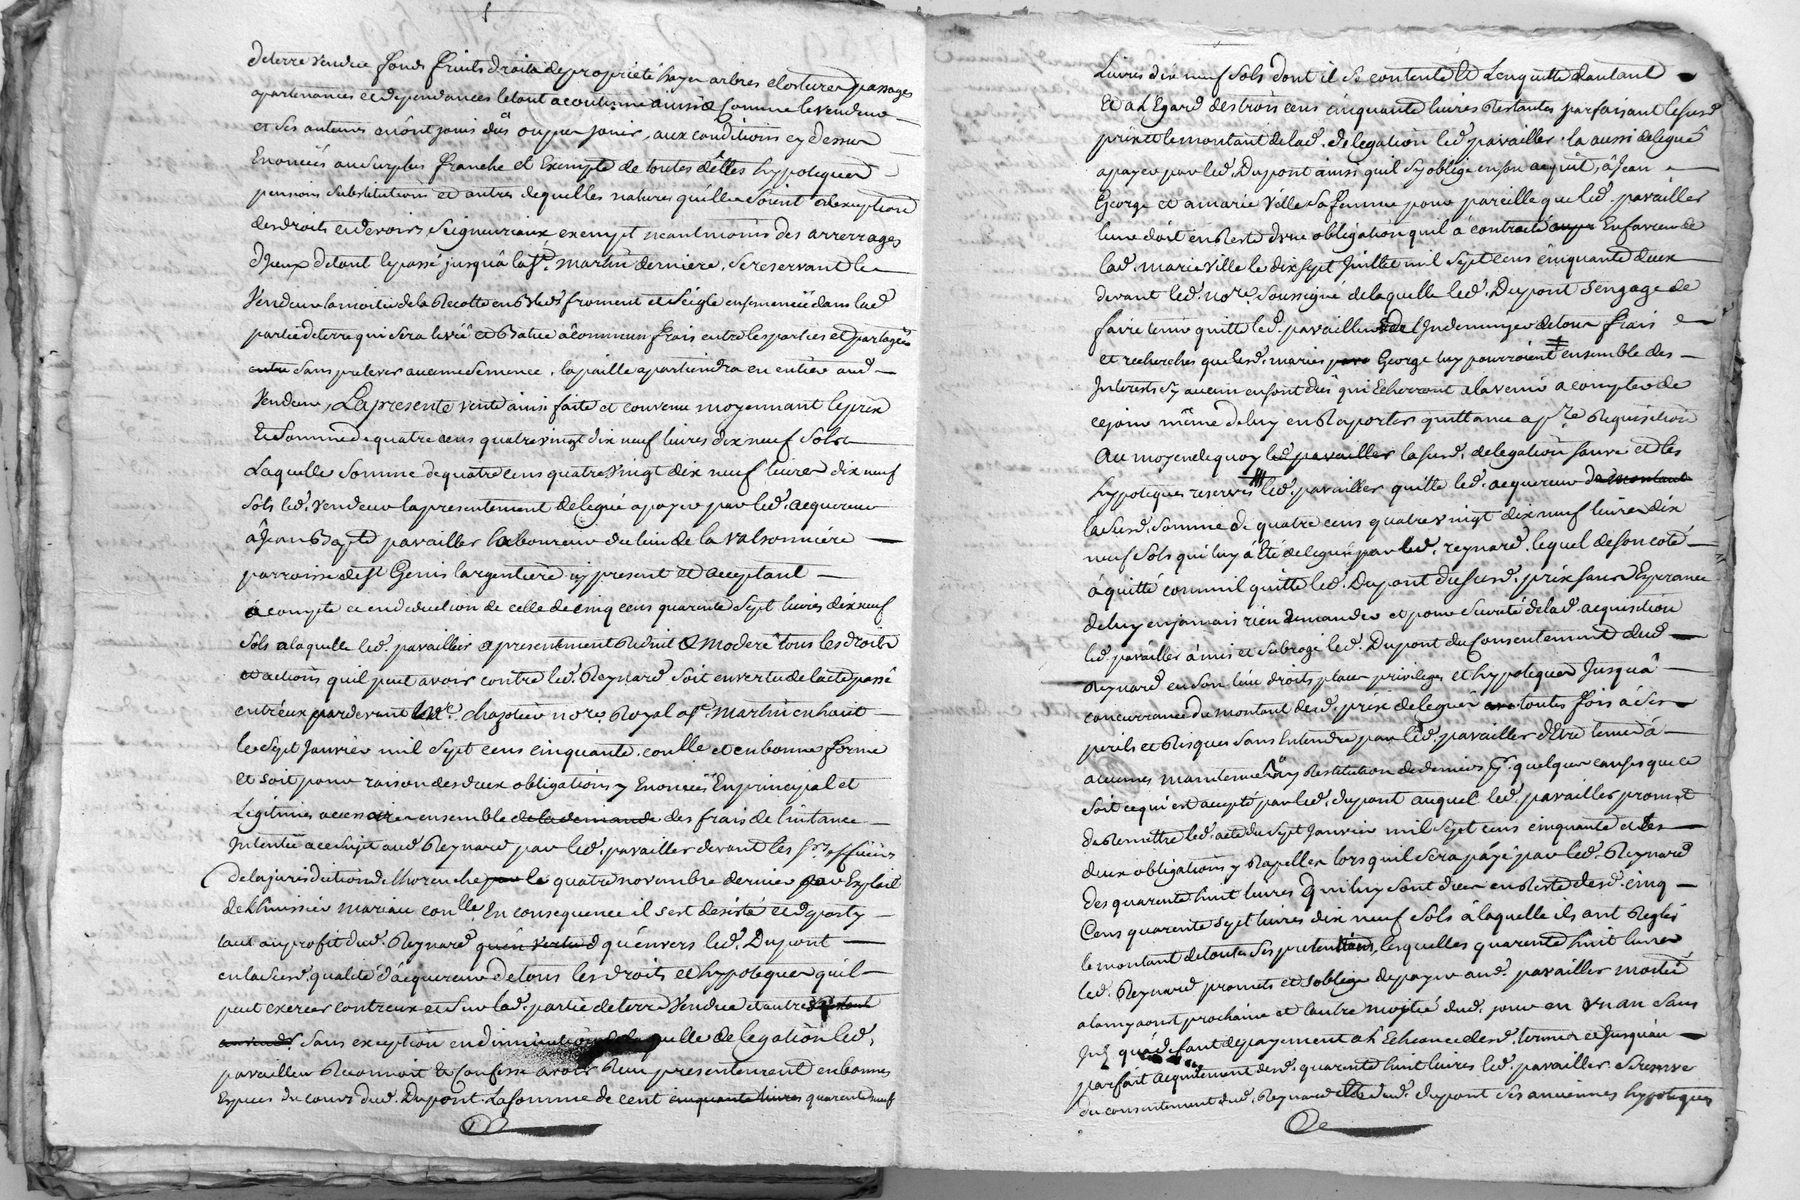 deterre vendue fonds fruits droits de propriété hayes arbres closture passages
apartenances et dependances le tout acoutumé ainsi & comme le vendeur
et ses auteurs en ont jouis dû ou peu jouir, aux conditions cy dessus
Enoncées au surplus franche et Exempte de toutes dettes hypoteques
pensions substitutions et autres de quelles natures quelles soient à lexception
des droits et devoirs seigneuriaux exempt neantmoins des arrerages
d'yceux de tout le passé jusqu'à la St. Martin derniere, se reservant le
Vendeur la moitié de la Recolte en Bleds froment et seigle ensemencée dans lad.
partie de terre qui sera levée et Batue à commun frais entre les parties et partagée
entre sans prelever aucune semence, la paille apartiendra en entier aud.
Vendeur, La presente vente ainsi faite et convenue moyennant le prix
Et somme de quatre cens quatre vingt dix neuf livres dix neuf sols
Laquelle somme de quatre cens quatre vingt dix neuf livres dix neuf
sols led. vendeur la presentement delegué a payer par led. acquereur
à Jean Bapte pavailler laboureur du lieu de la valsonniere
parroisse de St Genis largentiere icy present et acceptant
à compte et en deduction de celle de cinq cens quarante sept livres dix neuf
sols a laquelle led. pavailler a presentement Reduit & moderé tous les droits
et actions quil peut avoir contre led. Reynard soit en vertu de lacte passé
entr'eux pardevant Me. chazotier nore Royal a St. Martin en haut
le sept Janvier mil sept cens cinquante, conllé et en bonne forme
et soit pour raison des deux obligations y Enoncées En principal et
Legitimes accessoires ensemble de la demande des frais de linstance
Intentée a ce sujet aud. Reynard par led. pavailler devant les Srs. officiers
de la jurisdiction de thorenche par le quatre novembre dernier par Exploit
de lhuissier mariau conllé, En consequence il s'est desisté et deporty
tant au profit dud. Reynard qu'en vertud qu'envers led. Dupont
en lad. susd. qualité d'acquereur de tous les droits et hypoteques quil
peut exercer contreux et sur lad. partie de terre vendue et autres
sans exception en diminution de laquelle delegation led.
pavailler Reconnoit Et Confesse avoir Reçu presentement en bonnes
Especes du cours dud. Dupont la somme de cent cinquante livres quarente neuf
Livres dix neuf sols dont il se contente Et Len quitte d'autant
Et a l Egard des trois cens cinquante livres Restantes parfaisant le susd.
prix et le montant de lad. delegation led. pavailler la aussi delegué
a payer par led. Dupont ainsi quil sy oblige en son acquit, à Jean
George et a marie Ville sa femme pour pareille que led. pavailler
leur doit en Reste d'une obligation quil a contracté En faveur de
lad. marie Ville le dix sept Juillet mil sept cens cinquante deux
devant led. nore. soussigné de laquelle led. Dupont s'engage de
faire tenir quitte led. pavailler & de l'Indemniser de tous frais
et recherches que lesd. mariés George luy pourroient ensemble des
Interests sy aucun en sont dus qui Echerront a lavenir a compter de
ce jour même de luy en Raporter quittance a pre. Requisition
Au moyen de quoy led. pavailler la susd. delegation sauve et les
hypoteques reservés led. pavailler quitte led. acquereur de montant
la susd. somme de quatre cens quatre vingt dix neuf livres dix
neuf sols qui luy a été deleguée par led. reynard, lequel de son coté
à quitté comme il quitte led. Dupont du susd. prix sans Esperance
de luy en jamais rien demander et pour sureté de lad. acquisition
led. pavailler à mis et subrogé led. Dupont du consentement dud.
Reynard en son lieu droits places privileges et hypoteques Jusqu'à
concurrance du montant dud. prix delegué toutes fois à ses
perils et Risques sans Entendre par led. pavailler d'Etre tenu à
aucunes maintenue ny Restitution de deniers pr. quelque causes que ce
soit ce qui est accepté par led. dupont auquel led. pavailler promet
de Remettre led. acte du sept Janvier mil sept cens cinquante et les
deux obligations y Rapellées lors quil sera payé par led. Reynard
des quarente huit livres qui luy sont dues en Reste desd. cinq
Cens quarente sept livres dix neuf sols à laquelle ils ont Reglés
le montant de toutes ses pretentions, lesquelles quarente huit livres
led. Reynard promets et soblige de payer aud. pavailler moitié
a la my aout prochaine et lautre moitié dud. jour en un an sans
Int. qu'à defaut de payement a l Echeance desd. termes et Jusquau
parfait acquittement desd. quarente huit livres led. pavailler se reserve
du consentement dud. Reynard et dud. dupont ses anciennes hypoteques